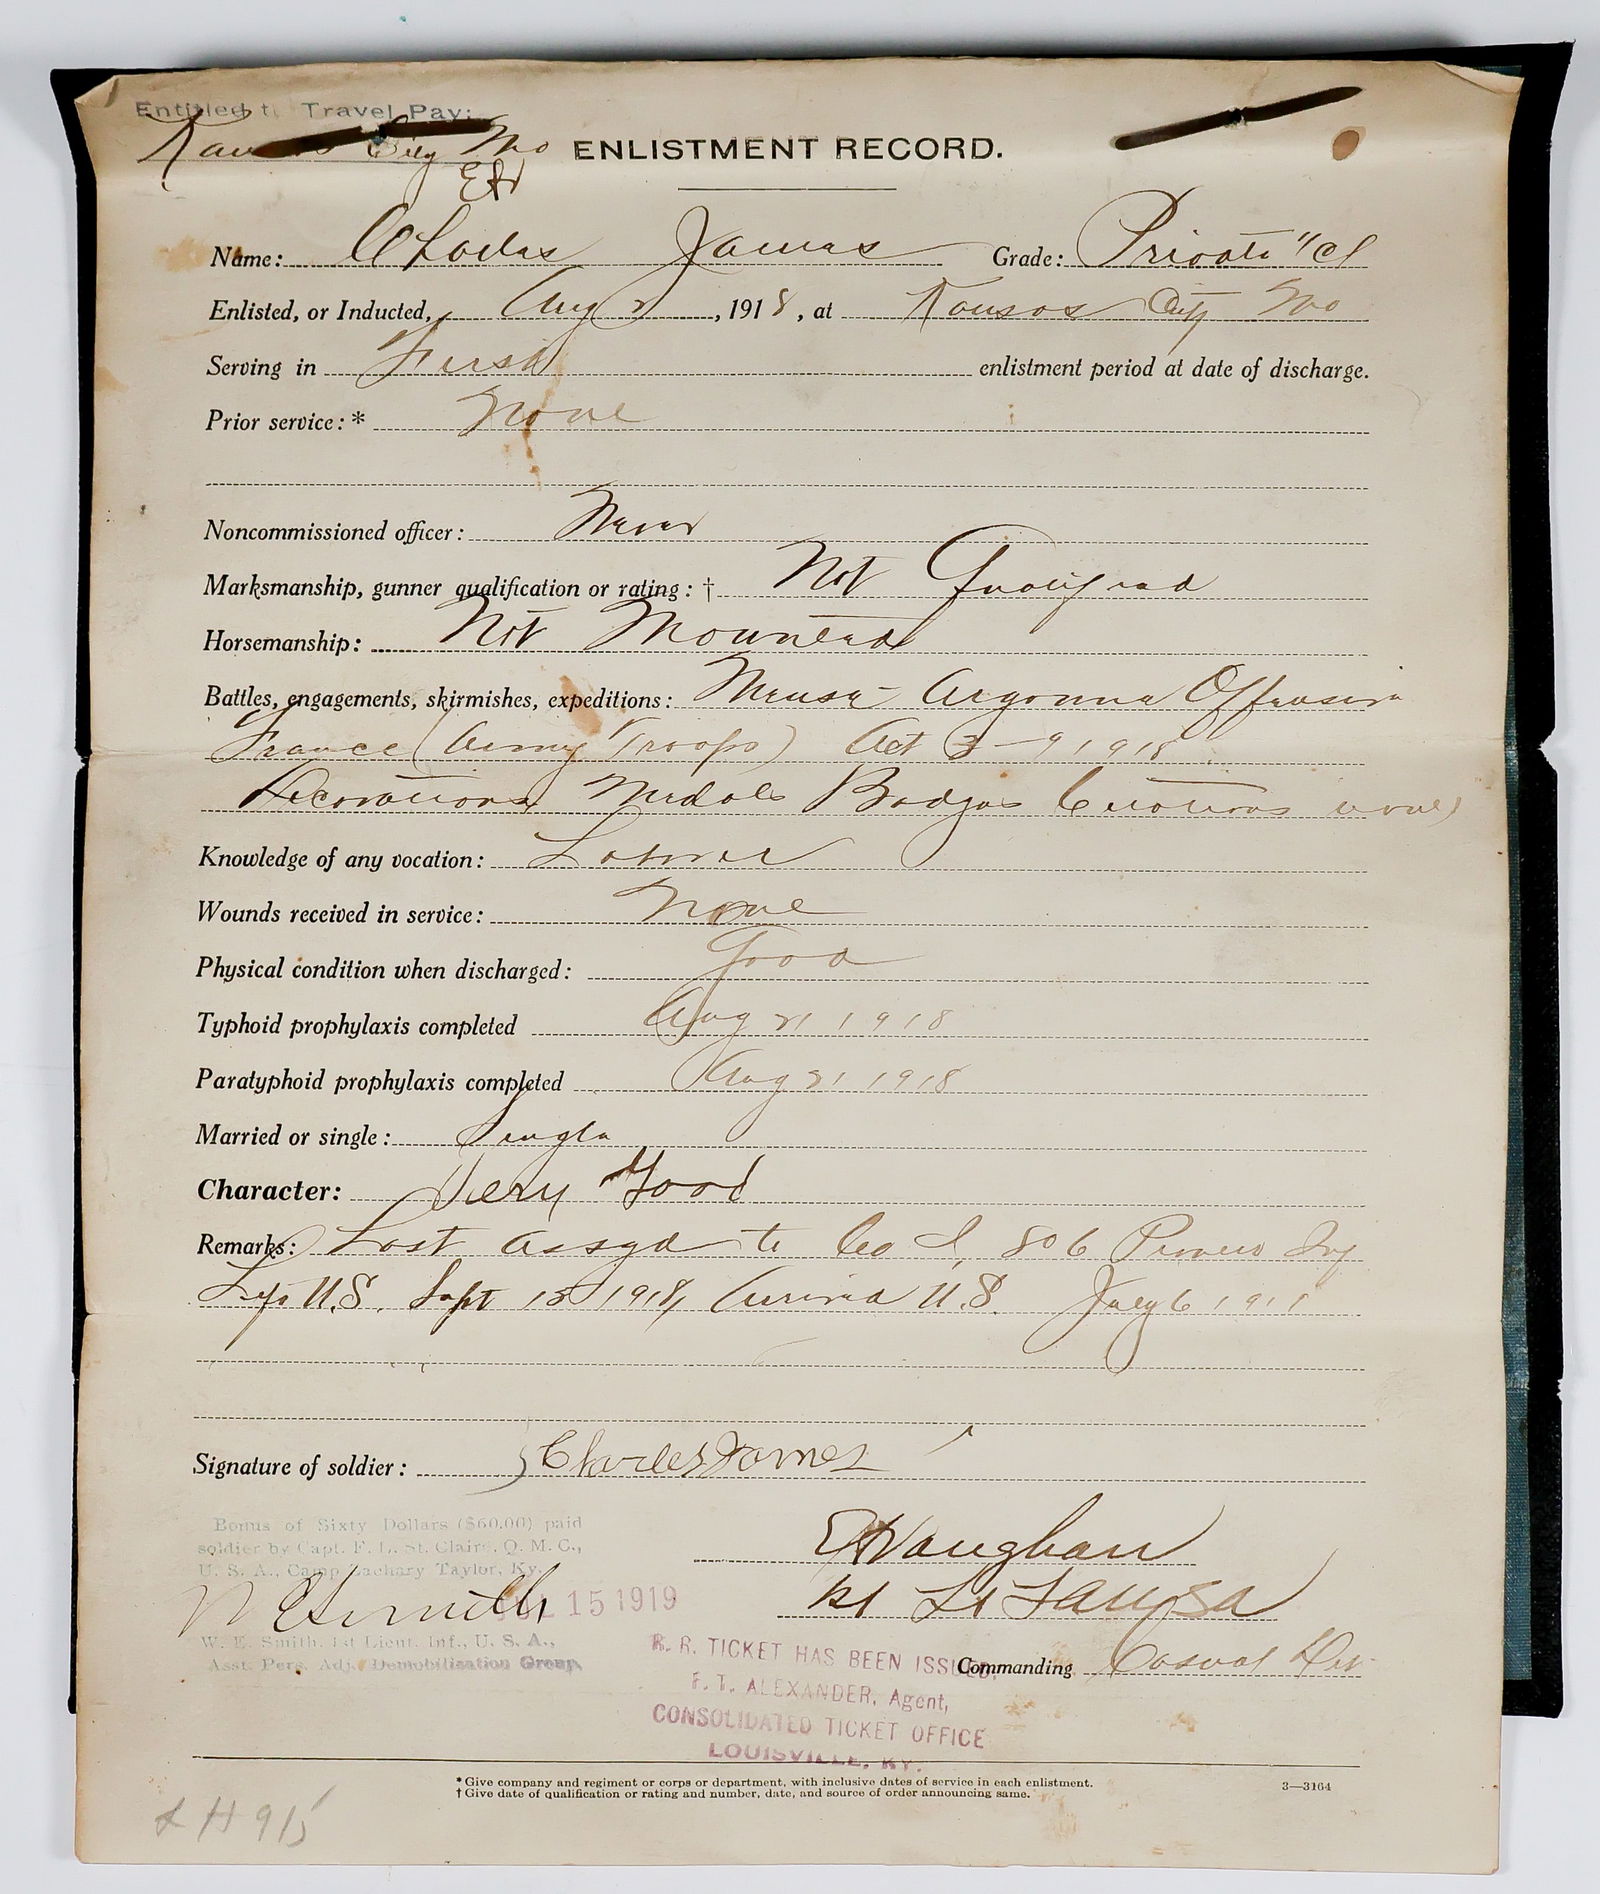 Entitled to Travel Pay:
Kansas City Mo
ENLISTMENT RECORD.
Name: Charles James Grade: Private 1/cl
Enlisted, or Inducted, Aug 2, 1918, at Kansas City Mo
Serving in First enlistment period at date of discharge.
Prior service:* None
Noncommissioned officer: Never
Marksmanship, gunner qualification or rating:† Not Qualified
Horsemanship: Not Mounted
Battles, engagements, skirmishes, expeditions: Meuse-Argonne Offensive
France (Army Troops) Oct 3-9 1918
Decorations Medals Badges Citations none
Knowledge of any vocation: Laborer
Wounds received in service: None
Physical condition when discharged: Good
Typhoid prophylaxis completed Aug 21 1918
Paratyphoid prophylaxis completed Aug 21 1918
Married or single: Single
Character: Very Good
Remarks: Last assgd to Co I, 806 Pioneer Inf
Left U.S. Sept 1918, Arrived U.S. July 6 191
Signature of soldier: Charles James
Bonus of Sixty Dollars ($60.00) paid
soldier by Capt. F. L. St. Claire, Q. M. C.,
U. S. A., Camp Zachary Taylor, Ky.
W E Smith JUL 15 1919
W. E. Smith, 1st Lieut. Inf., U. S. A.,
Asst. Pers. Adj. Demobilization Group.
Vaughan
1st Lt USA
Commanding Casual Det
R. R. TICKET HAS BEEN ISSUED.
F. T. ALEXANDER, Agent,
CONSOLIDATED TICKET OFFICE
LOUISVILLE, KY.
*Give company and regiment or corps or department, with inclusive dates of service in each enlistment.
†Give date of qualification or rating and number, date, and source of order announcing same.
3—3164
H 915